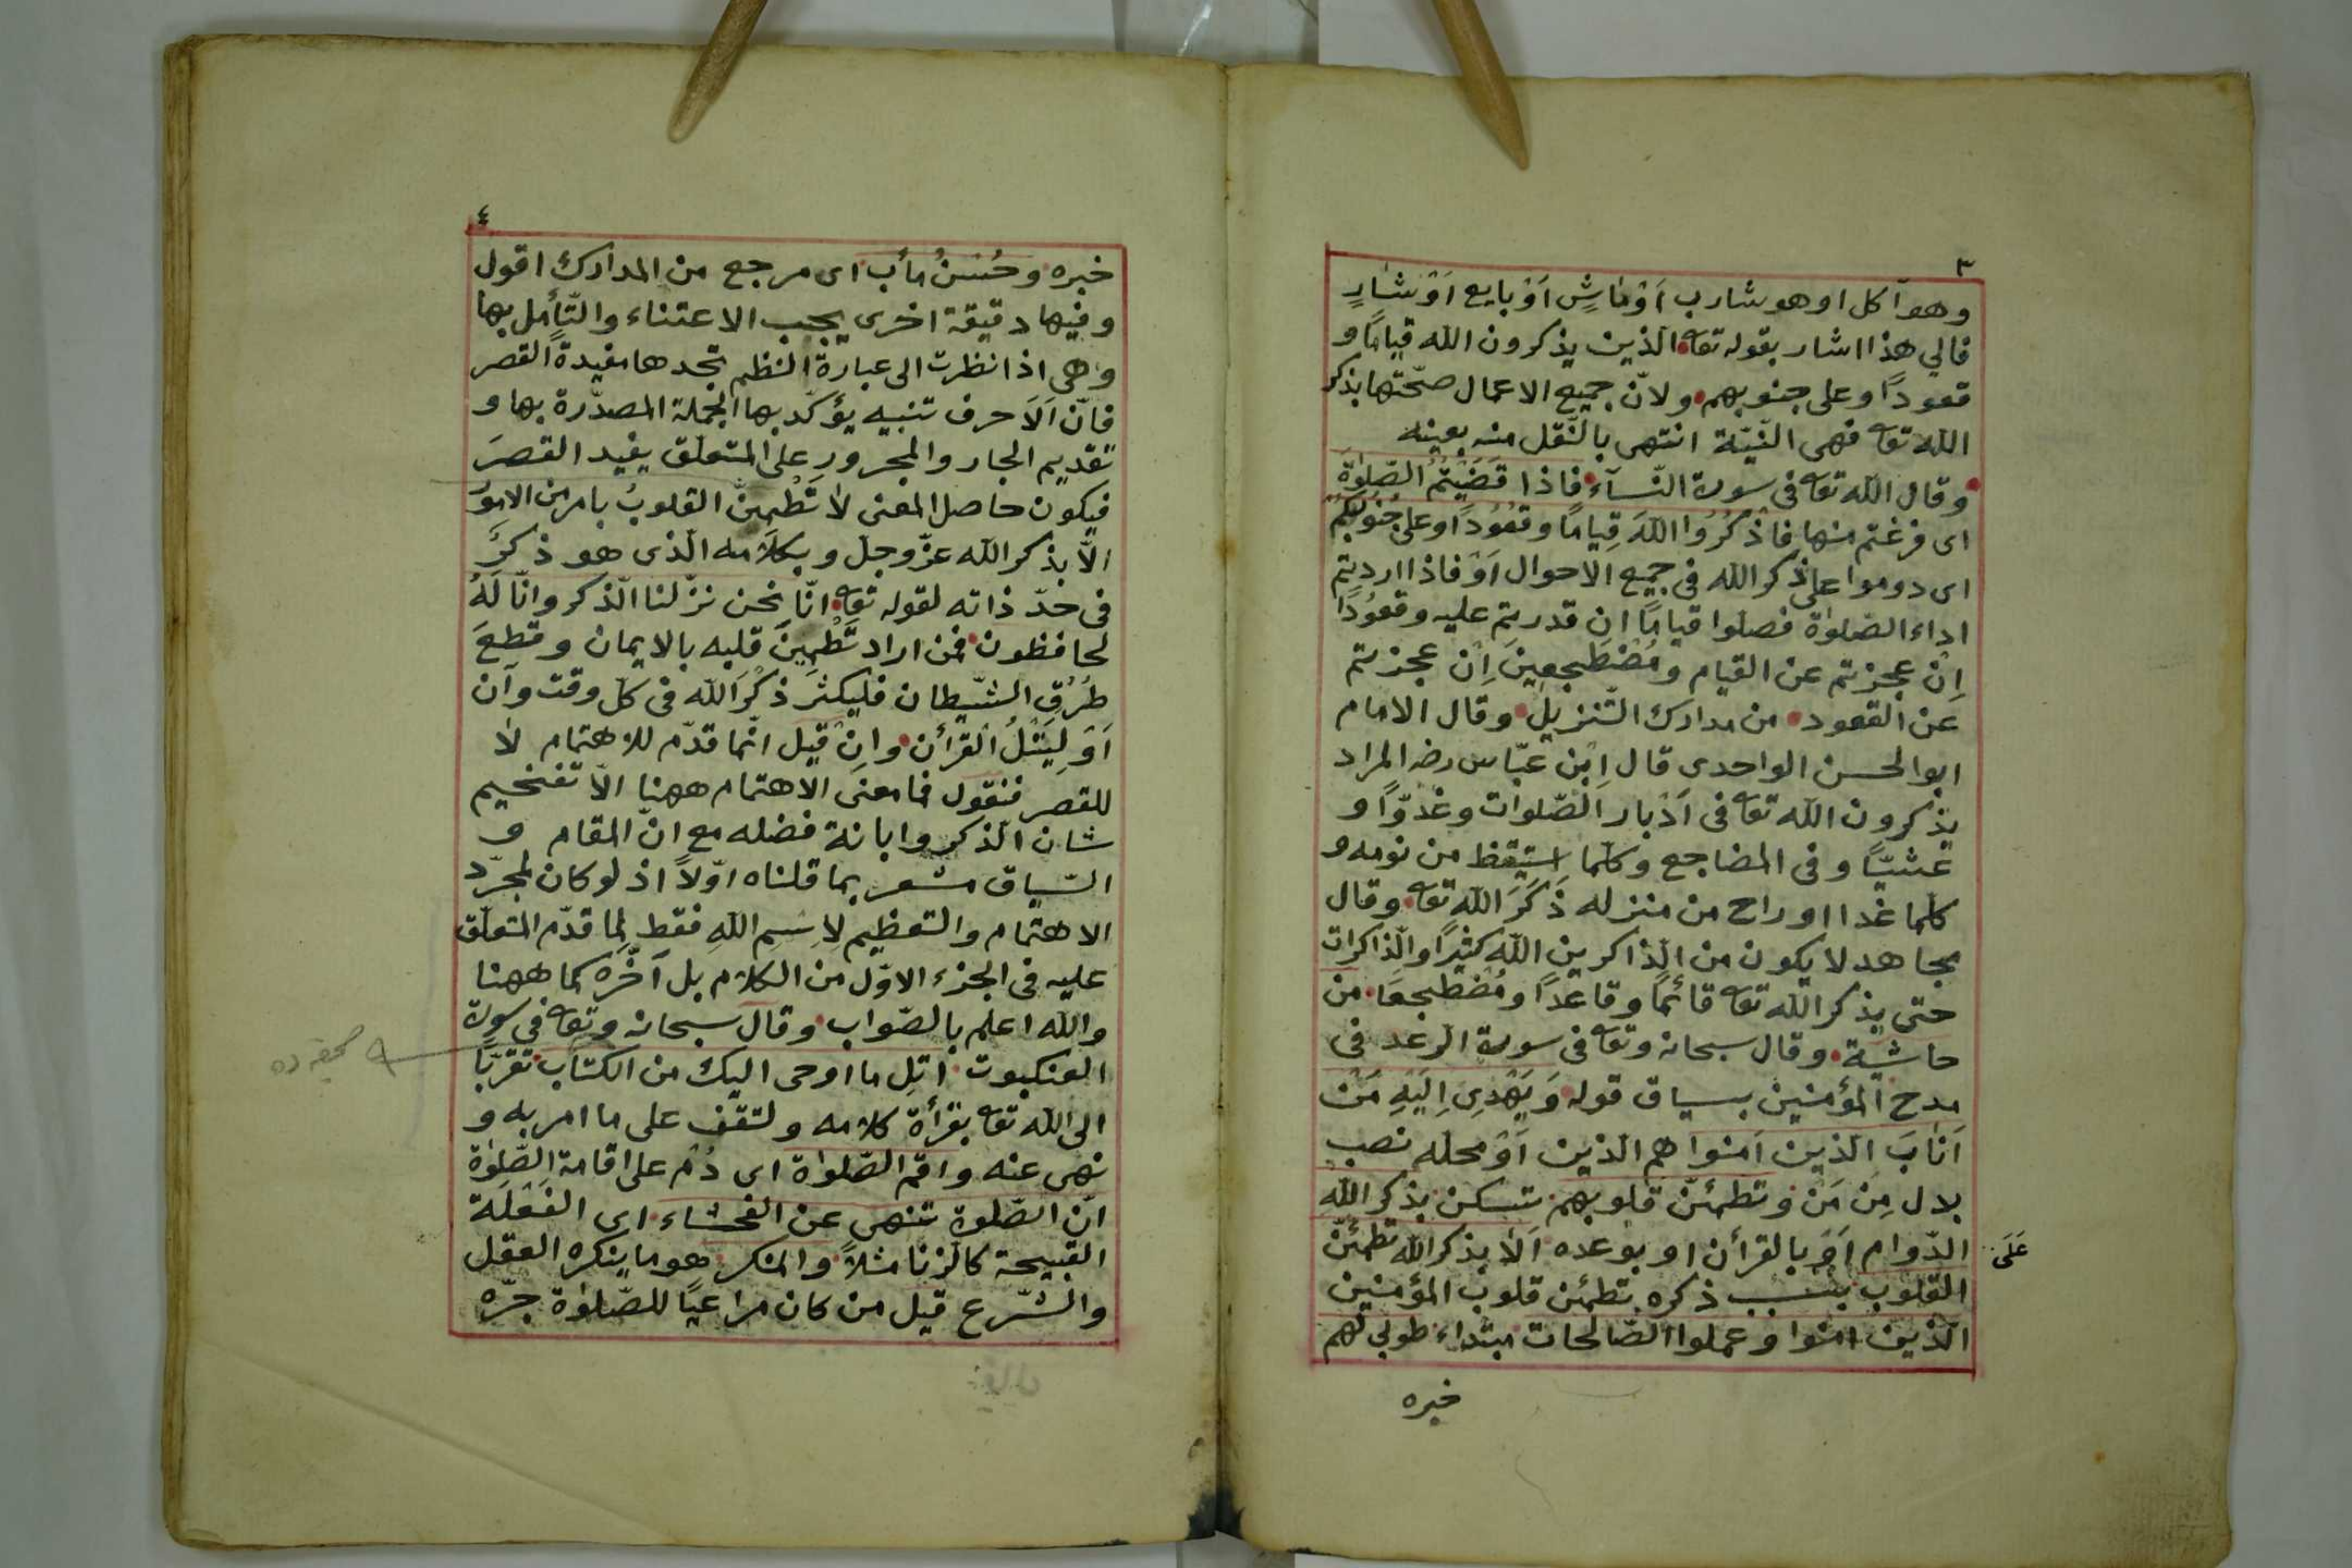 ٣
وهو آكل او هو شارب اَوْ مَاشٍ اَوْ بايع اَوْ شَارٍ
فالي هذا اشار بقوله تعه الّذين يذكرون الله قيامًا و
قعودًا وعلى جنوبهم ولانّ جميع الاعمال صحّتها بذكر
الله تعه فهى النّيّة انتهى بالنّقل منه بعينه
وقال الله تعه فى سورة النّسآء فاذا قَضَيْتُمُ الصّلوٰةَ
اى فرغتم منها فاذْكُرُوا اللهَ قِيامًا وقُعُودًا وعلى جُنُوبِكُمْ
اى دوموا على ذكر الله فى جميع الاحوال اَوْ فاذا اردتم
اداء الصّلوٰة فصلّوا قيامًا ان قدرتم عليه وقعُودًا
اِنْ عجزتم عن القيام ومُضْطَجعِينَ اِنْ عجزتم
عن القعود من مدارك التّنزيل وقال الامام
ابو الحسن الواحدى قال اِبْن عبّاس رضه المراد
يذكرون الله تعه فى اَدْبار الصّلوات وغدوًّا و
عشيًّا وفى المضاجع وكلّما استيقظ من نومه و
كلّما غدا او راح من منزله ذَكَرَ الله تعه وقال
مجاهد لا يكون من الذاكرين الله كثيرًا والذّاكرات
حتى يذكر الله تعه قائمًا وقاعدًا ومُضْطجعًا من
حاشية وقال سبحانه وتعه فى سورة الرعد فى
مدح المؤمنين بسياق قوله وَيَهْدِى اِلَيْهِ مَنْ
اَنَابَ الّذين اٰمنوا هم الّذين اَوْ محلّه نصب
بدل مِنْ مَنْ وتطمئنّ قلوبهم تسكن بذكر الله
الدّوام اَوْ بالقرأن او بوعده اَلاَ بذكر الله تطمئنّ
عَلَى
القلوب بسبب ذكره تطمئن قلوب المؤمنين
الّذين اٰمنوا وعملوا الصّالحات مبتداء طوبى لهم
خبره
٤
خبره وحُسْنُ مأب اى مرجع من المدارك اقول
وفيها دقيقة اخرى يجب الاعتناء والتّأمل بها
وهى اذا نظرت الى عبارة النظم تجدها مفيدة القصر
فانّ اَلاَ حرف تنبيه يؤكّد بها الجملة المصدّرة بها و
تقديم الجار والمجرور على المتعلّق يفيد القصرَ
فيكون حاصل المعنى لا تَطْمِنّ القلوبُ بامر من الامورِ
الاّ بذكر الله عزّ وجلّ وبكلامه الّذى هو ذكرٌ
فى حدّ ذاته لقوله تعه انّا نحن نزّلنا الذّكر وانّا لَهُ
لحافظون فمن اراد تَطْمِينَ قلبه بالايمان وقطعَ
طُرُقِ الشّيطان فليكثر ذكر الله فى كلّ وقت وآن
اَوْ لِيَتْلُ القرأن وانْ قيل انّما قدّم للاهتمام لا
للقصر فنقول فما معنى الاهتمام ههنا الاّ تفخيم
شان الذكر وابانة فضله مع انّ المقام و
السّياق مشعر بما قلناه اوّلاً اذ لو كان لمجرّد
الاهتمام والتعظيم لِاسْمِ اللهِ فقط لما قدّم المتعلّق
عليه فى الجزء الاوّل من الكلام بل اَخّره كما ههنا
والله اعلم بالصّواب وقال سبحانه وتعه فى سورة
العنكبوت اتل ما اوحى اليك من الكتاب تقرّبًا
الى الله تعه بقرأة كلامه ولتقف على ما امر به و
نهى عنه واقم الصّلوٰة اى دُمْ على اقامة الصّلوٰة
انّ الصّلوة تنهى عن الفحشاء اى الفَعْلَة
القبيحة كالزّنا مثلاً والمنكر هو ما ينكره العقل
والشّرع قيل من كان مراعيًا للصّلوٰة جرّه